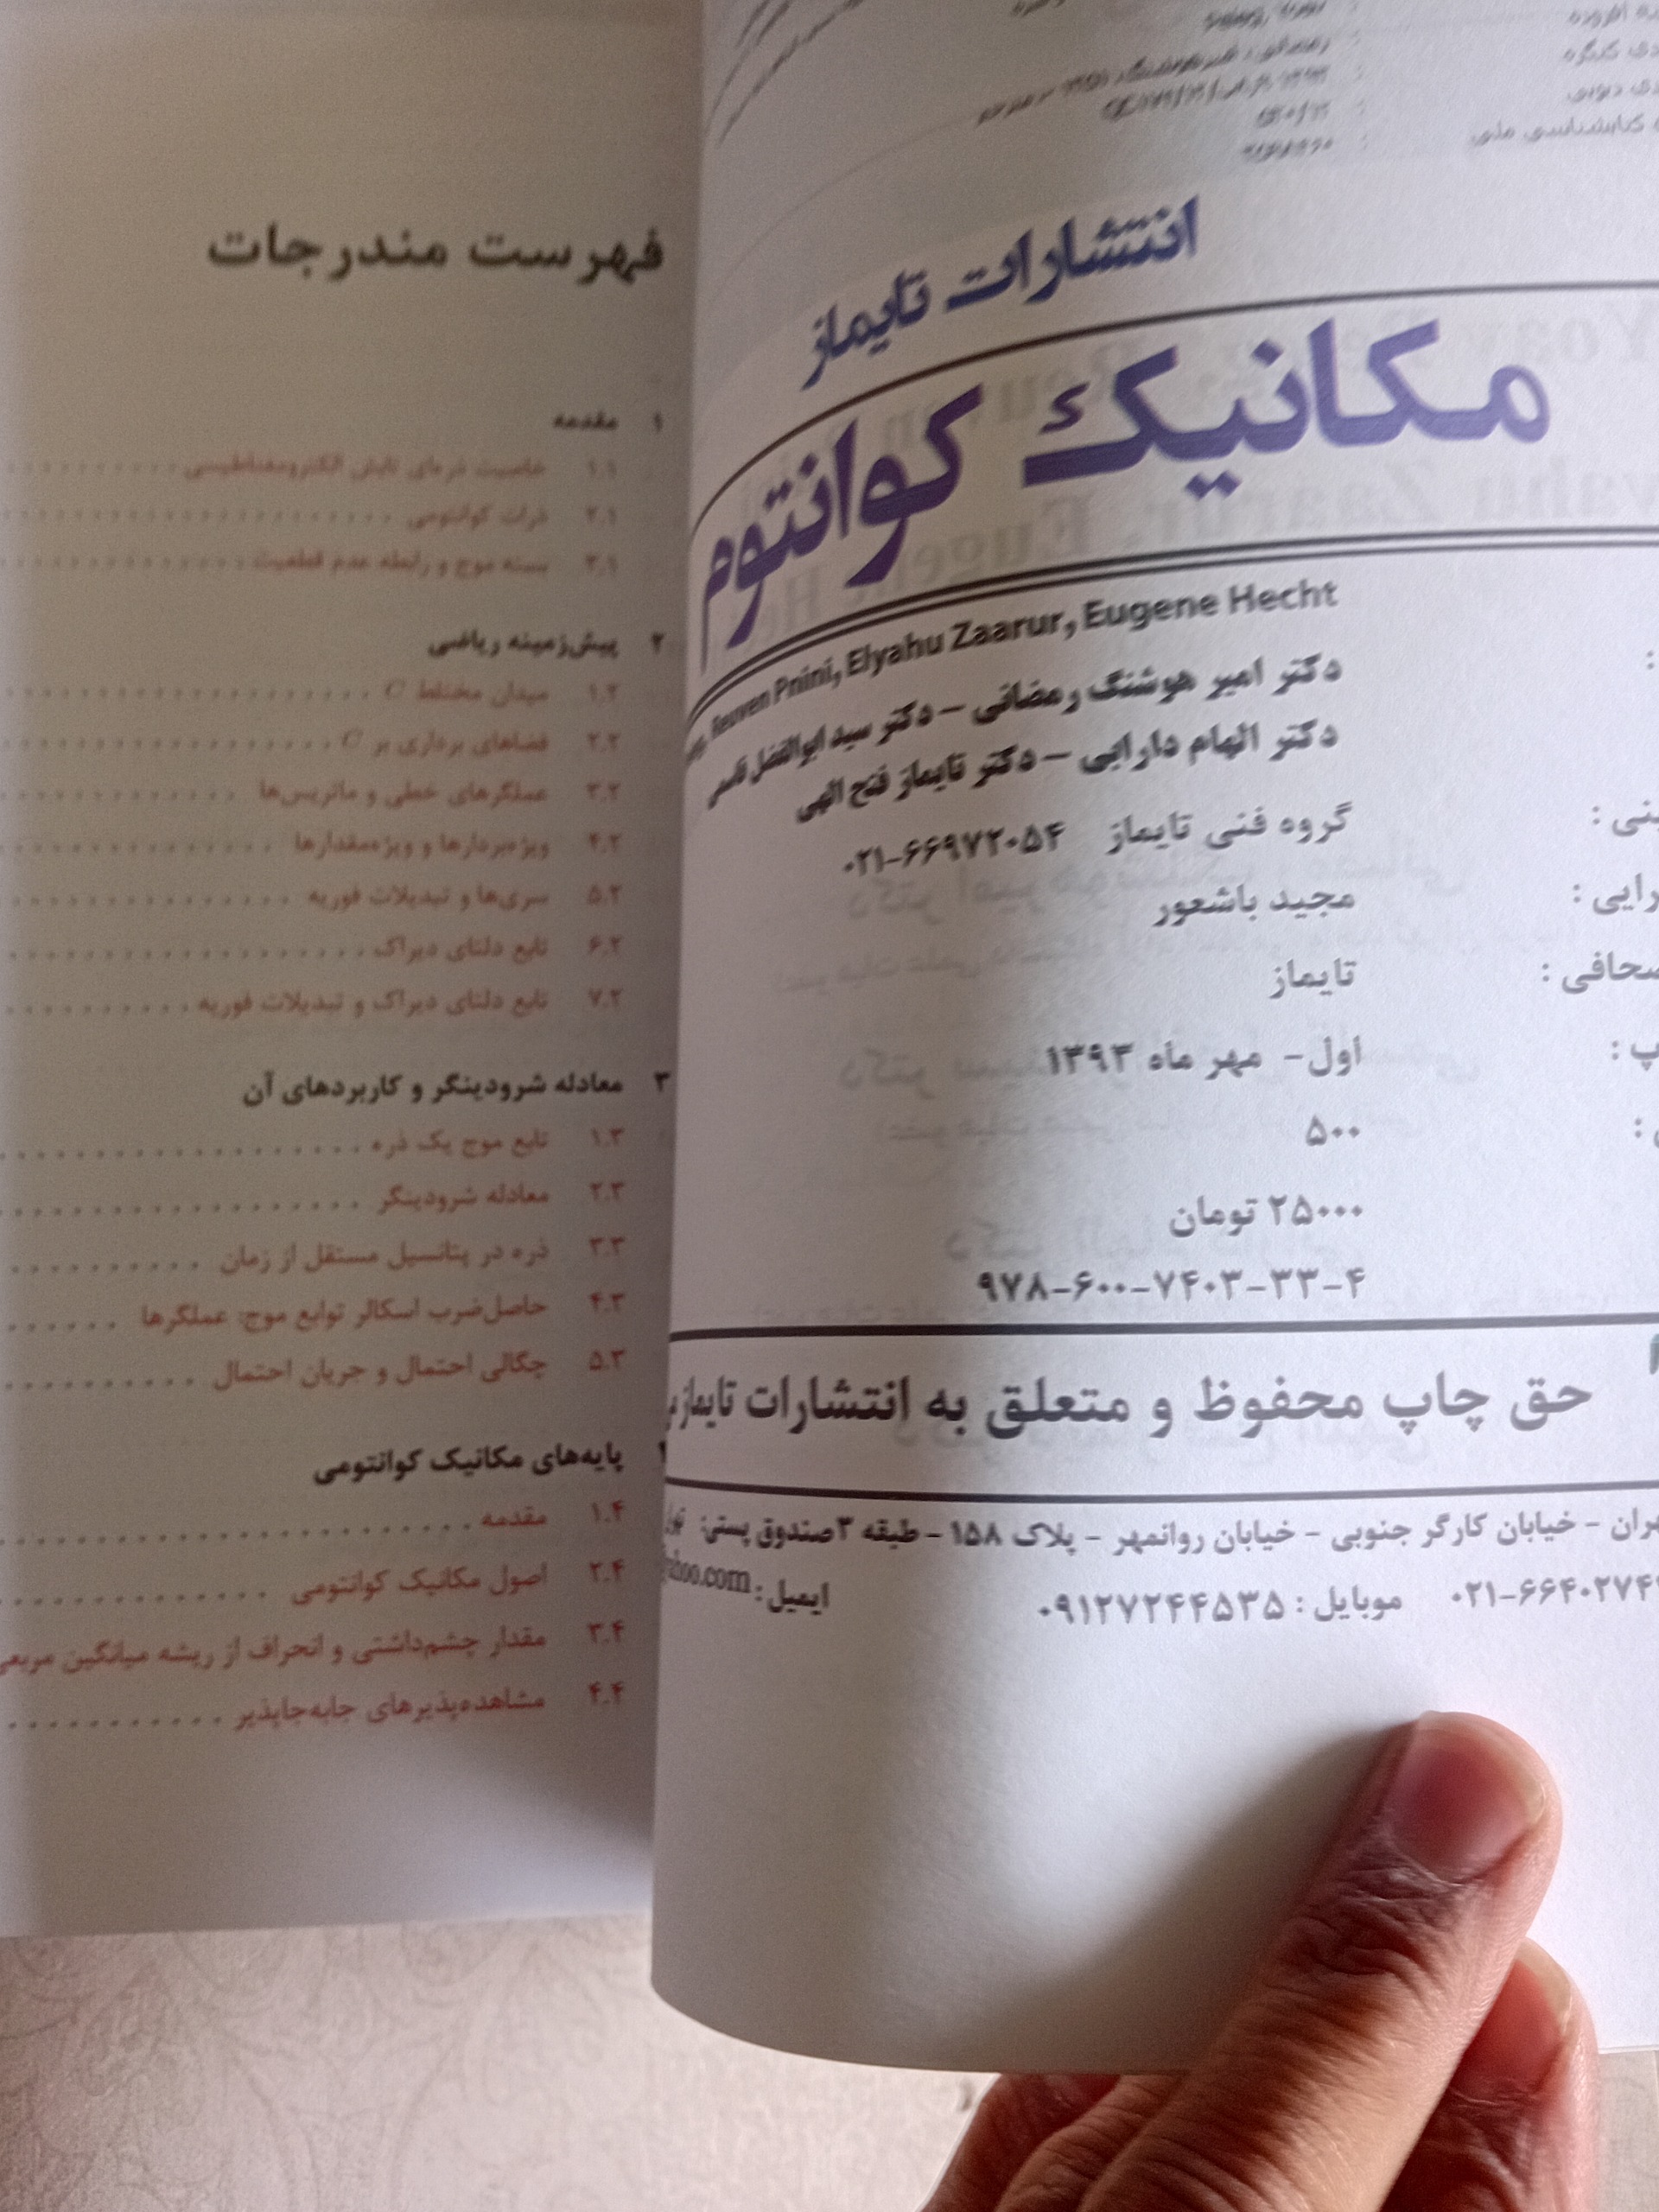 انتشارات تایماز
مکانیک کوانتوم
Reuven Pnini, Elyahu Zaarur, Eugene Hecht
دکتر امیر هوشنگ رمضانی – دکتر سید ابوالفضل قاسمی
دکتر الهام دارایی – دکتر تایماز فتح الهی
گروه فنی تایماز ۰۲۱-۶۶۹۷۲۰۵۴
مجید باشعور
تایماز
اول- مهر ماه ۱۳۹۳
۵۰۰
۲۵۰۰۰ تومان
۹۷۸-۶۰۰-۷۴۰۳-۳۳-۴
حق چاپ محفوظ و متعلق به انتشارات تایماز
خیابان کارگر جنوبی – خیابان روانمهر – پلاک ۱۵۸ – طبقه ۳ صندوق پستی:
موبایل : ۰۹۱۲۷۲۴۴۵۳۵ ایمیل :
فهرست مندرجات
۱ مقدمه
۱.۱ خاصیت ذره‌ای تابش الکترومغناطیسی
۲.۱ ذرات کوانتومی
۳.۱ بسته موج و رابطه عدم قطعیت
۲ پیش‌زمینه ریاضی
۱.۲ میدان مختلط C
۲.۲ فضاهای برداری بر C
۳.۲ عملگرهای خطی و ماتریس‌ها
۴.۲ ویژه‌بردارها و ویژه‌مقدارها
۵.۲ سری‌ها و تبدیلات فوریه
۶.۲ تابع دلتای دیراک
۷.۲ تابع دلتای دیراک و تبدیلات فوریه
۳ معادله شرودینگر و کاربردهای آن
۱.۳ تابع موج یک ذره
۲.۳ معادله شرودینگر
۳.۳ ذره در پتانسیل مستقل از زمان
۴.۳ حاصل‌ضرب اسکالر توابع موج: عملگرها
۵.۳ چگالی احتمال و جریان احتمال
پایه‌های مکانیک کوانتومی
۱.۴ مقدمه
۲.۴ اصول مکانیک کوانتومی
۳.۴ مقدار چشم‌داشتی و انحراف از ریشه میانگین مربعی
۴.۴ مشاهده‌پذیرهای جابه‌جاپذیر